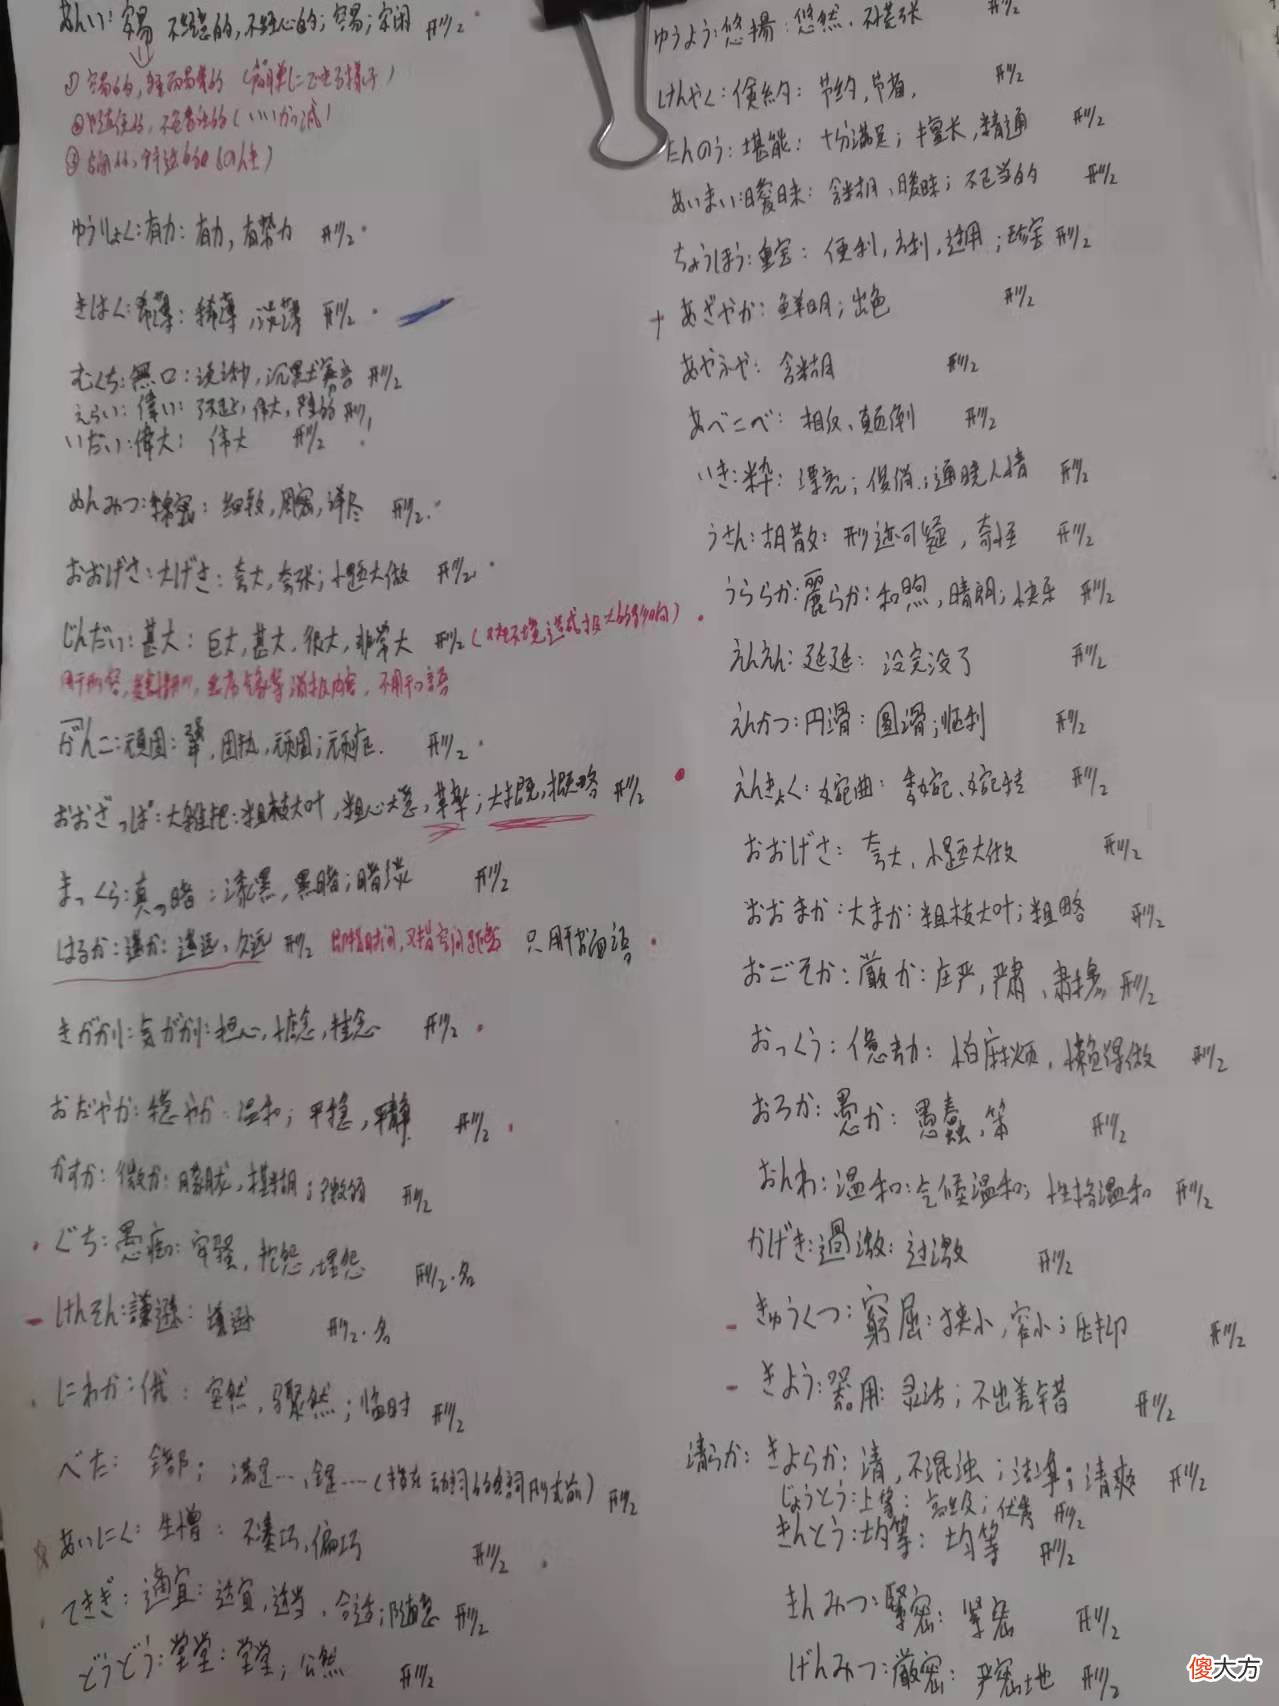 あんい: 安易 不经意的,不经心的; 容易; 安闲 形2
① 容易的,轻而易举的 (簡単にできる様子)
ゆうりょく: 有力: 有力, 有势力 形2
きはく: 希薄: 稀薄, 淡薄 形2
むくち: 無口: 沉默寡言 形2
えらい: 偉い: 伟大, 形1
いだい: 偉大: 伟大 形2
めんみつ: 綿密: 细致, 周密, 详尽 形2
おおげさ: 大げさ: 夸大, 夸张; 小题大做 形2
じんだい: 甚大: 巨大, 甚大, 很大, 非常大 形2 (对环境造成极大的影响)
不用于口語
がんこ: 頑固: 固执, 顽固; 顽症. 形2
おおざっぱ: 大雑把: 粗枝大叶, 粗心大意, 草率; 大概, 概略 形2
まっくら: 真っ暗: 漆黑, 黑暗; 暗淡 形2
はるか: 遥か: 遥远, 久远 形2 即指时间, 又指空间距离 只用于书面語
きがかり: 気がかり: 担心, 惦念, 挂念 形2
おだやか: 穏やか: 温和; 平稳, 平静 形2
かすか: 微か: 朦胧, 模糊; 微弱 形2
ぐち: 愚痴: 牢骚, 抱怨, 埋怨 形2.名
けんそん: 謙遜: 谦逊 形2.名
にわか: 俄: 突然, 骤然; 临时 形2
べた: 全部; 满是…, 全是… 形2
あいにく: 生憎: 不凑巧, 偏巧 形2
てきぎ: 適宜: 适宜, 适当, 合适; 随意 形2
どうどう: 堂堂: 堂堂; 公然 形2
ゆうよう: 悠揚: 悠然, 不慌张 形2
けんやく: 倹約: 节约, 节省, 形2
たんのう: 堪能: 十分满足; 擅长, 精通 形2
あいまい: 曖昧: 含糊, 暧昧; 不正当的 形2
ちょうほう: 重宝: 便利, 方便, 适用; 珍宝 形2
あざやか: 鲜明; 出色 形2
あやふや: 含糊 形2
あべこべ: 相反, 颠倒 形2
いき: 粋: 漂亮; 俊俏; 通晓人情 形2
うさん: 胡散: 形迹可疑, 奇怪 形2
うららか: 麗らか: 和煦, 晴朗; 快乐 形2
えんえん: 延延: 没完没了 形2
えんかつ: 円滑: 圆滑; 顺利 形2
えんきょく: 婉曲: 委婉, 婉转 形2
おおげさ: 夸大, 小题大做 形2
おおまか: 大まか: 粗枝大叶; 粗略 形2
おごそか: 厳か: 庄严, 严肃, 肃穆 形2
おっくう: 億劫: 怕麻烦, 懒得做 形2
おろか: 愚か: 愚蠢, 笨 形2
おんわ: 温和: 气候温和; 性格温和 形2
かげき: 過激: 过激 形2
きゅうくつ: 窮屈: 狭小, 窄小; 压抑 形2
きよう: 器用: 灵活; 不出差错 形2
清らか: きよらか: 清, 不混浊; 洁净; 清爽 形2
じょうとう: 上等: 高级; 优秀 形2
きんとう: 均等: 均等 形2
きんみつ: 緊密: 紧密 形2
げんみつ: 厳密: 严密地 形2
傻大方